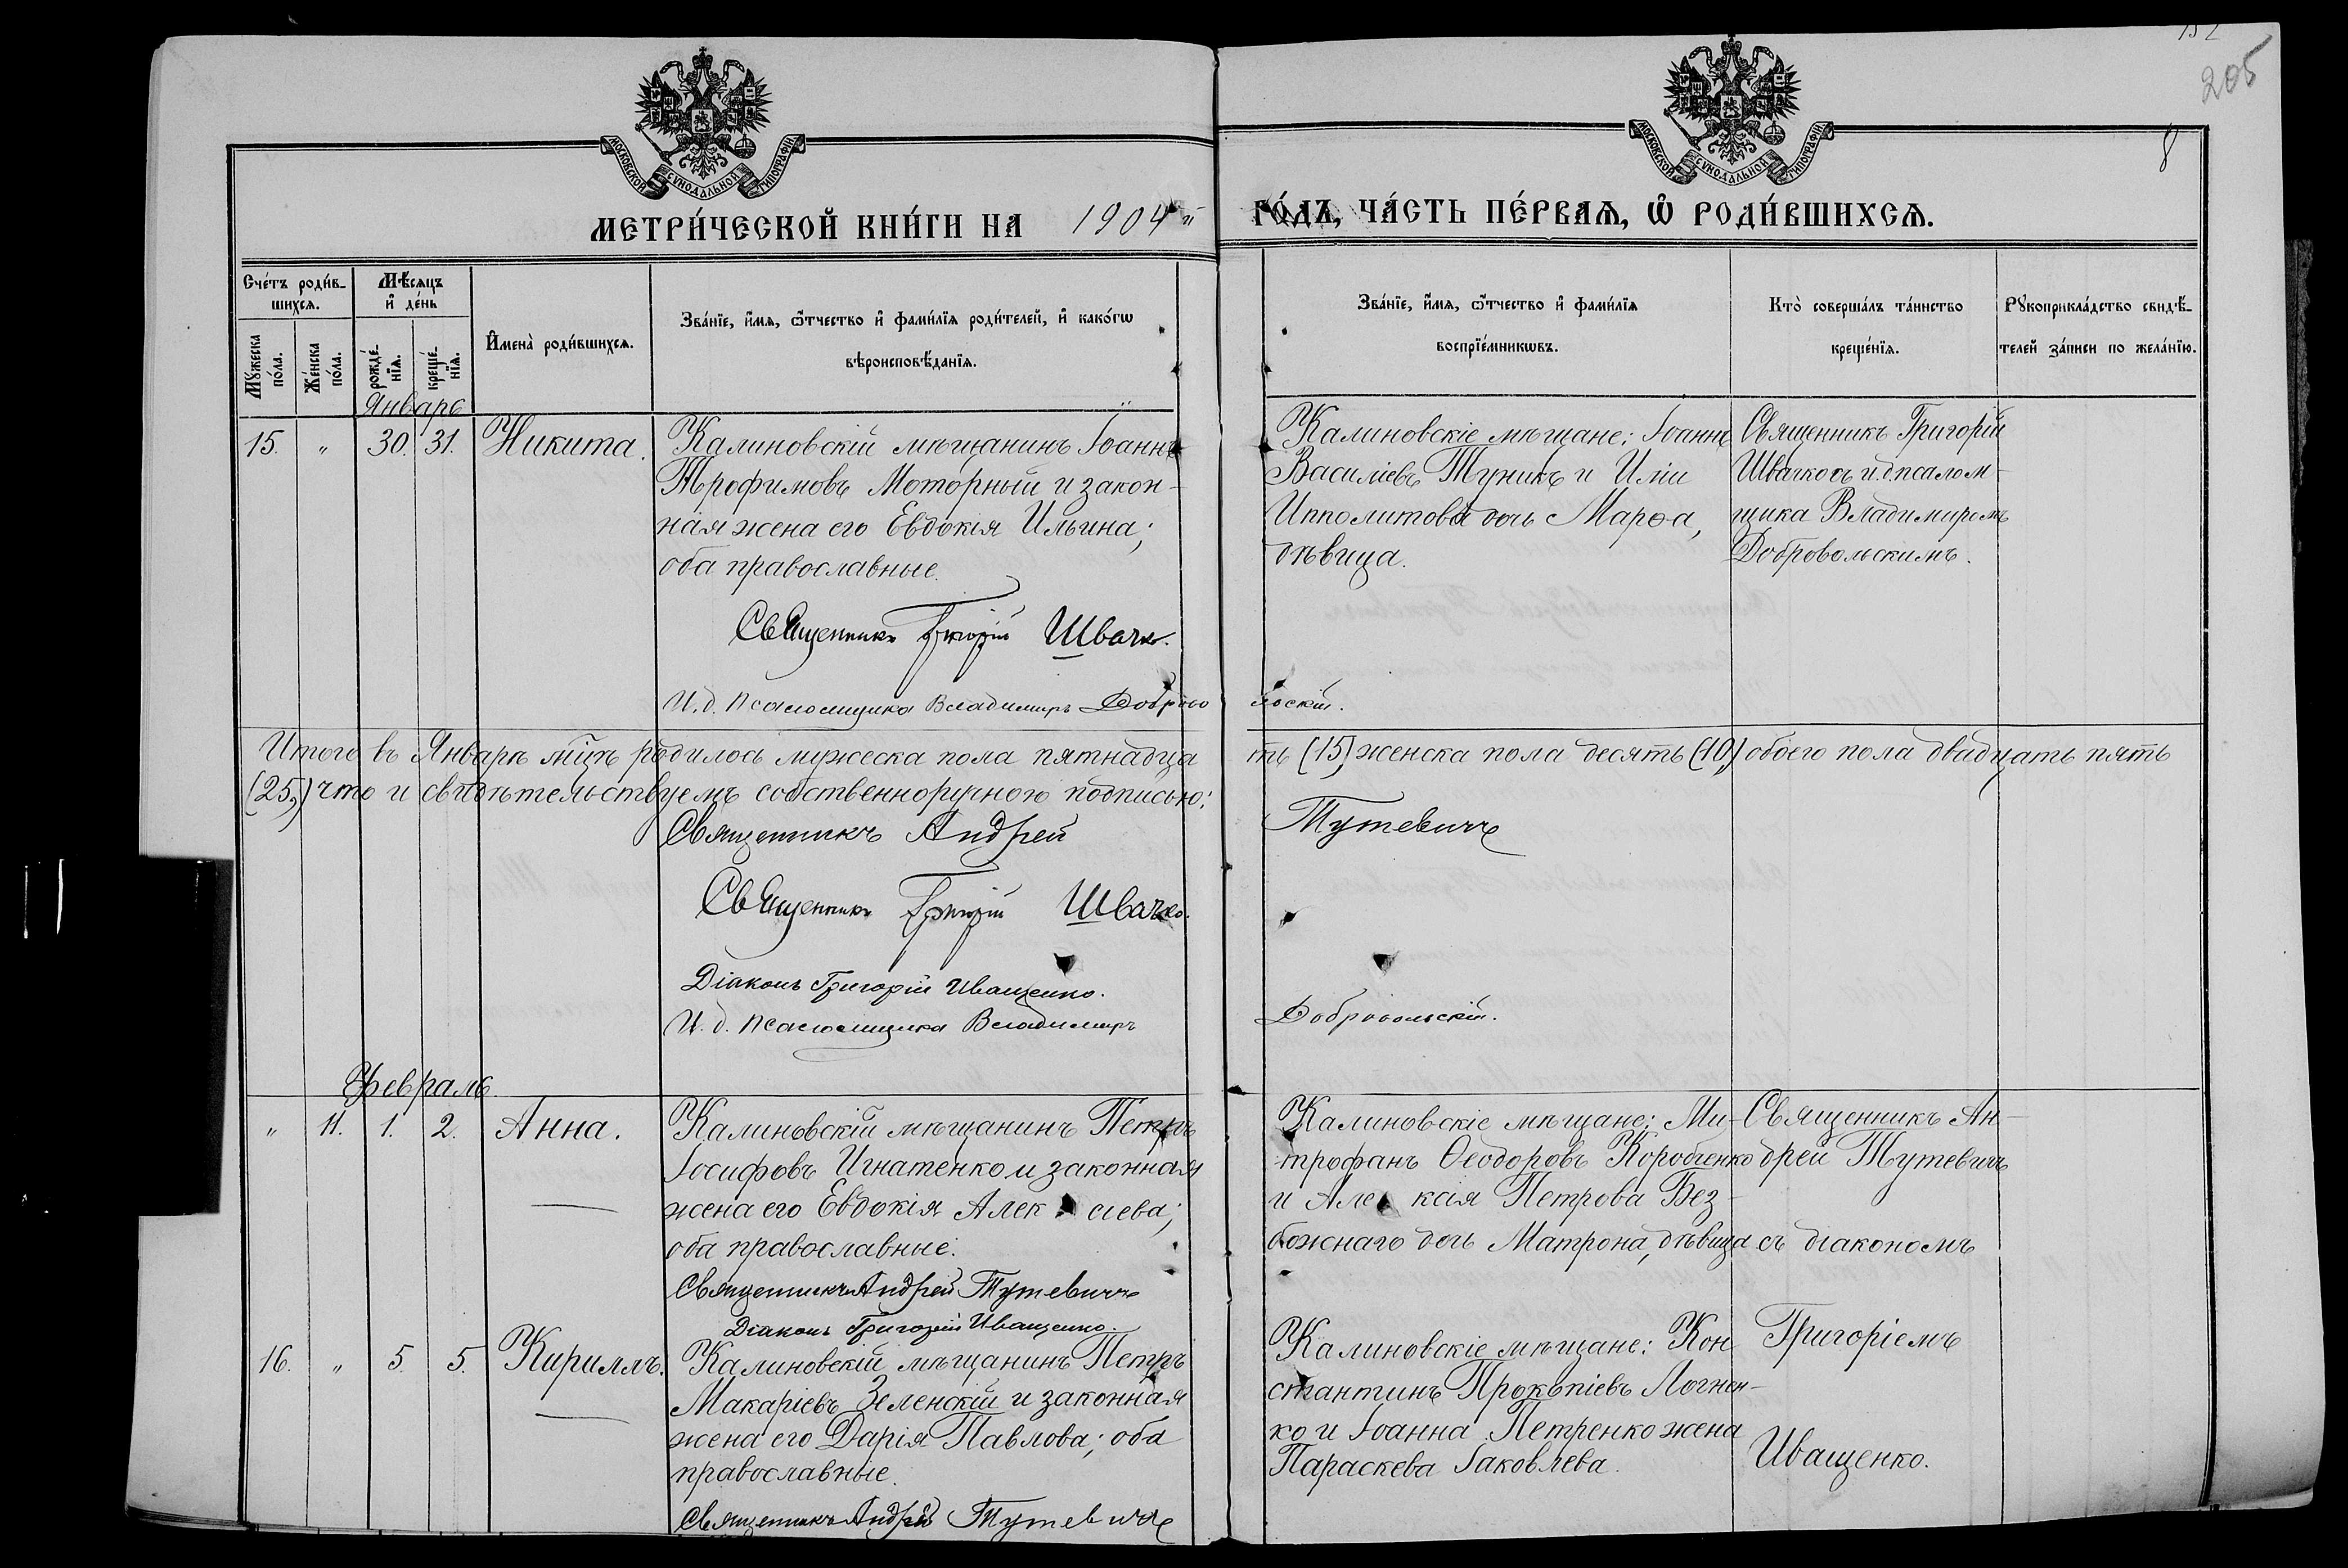 152
205
8
МОСКОВСКОЙ СѴНОДАЛЬНОЙ ТИПОГРАФІИ.
МОСКОВСКОЙ СѴНОДАЛЬНОЙ ТИПОГРАФІИ.
МЕТРИ́ЧЕСКОЙ КНИ́ГИ НА 1904й
ГО́ДЪ, ЧА́СТЬ ПЕ́РВАѦ, Ѽ РОДИ́ВШИХСѦ.
Сче́тъ роди́в-
шихсѧ.
Мꙋ́жеска
по́ла.
Же́нска
по́ла.
Мѣ́сѧцъ
и҆ де́нь
рожде́-
нїѧ.
креще́-
нїѧ.
И҆мена̀ роди́вшихсѧ.
Зва́нїе, и҆́мѧ, ѻ҆́тчество и҆ фами́лїѧ роди́телей, и҆ како́гѡ
вѣроисповѣ́данїѧ.
Зва́нїе, и҆́мѧ, ѻ҆́тчество и҆ фами́лїѧ
воспрїе́мникѡвъ.
Кто̀ соверша́лъ та́инство
креще́нїѧ.
Рꙋкоприкла́дство свидѣ́-
телей за́писи по жела́нїю.
Январь
15. " 30. 31. Никита.
Калиновскій мѣщанинъ Іоаннъ
Трофимовъ Моторный и закон-
ная жена его Евдокія Ильина;
оба православные.
Священникъ Григорій Швачко.
И.д. Псаломщика Владимиръ Доброво
льскій.
Калиновскіе мѣщане: Іоаннъ
Василіевъ Туникъ и Иліи
Ипполитова дочь Марѳа,
дѣвица.
Священникъ Григорій
Швачко съ и.д. псалом-
щика Владимиромъ
Добровольскимъ.
Итого въ Январѣ мѣцѣ родилось мужеска пола пятнадца
ть (15) женска пола десять (10) обоего пола двадцать пять
(25,) что и свидѣтельствуемъ собственноручною подписью:
Священникъ Андрей Тутевичъ
Священникъ Григорій Швачко.
Діаконъ Григорій Иващенко.
И. д. Псаломщика Владимиръ Добровольскій.
Февраль.
" 11. 1. 2. Анна.
Калиновскій мѣщанинъ Петръ
Іосифовъ Игнатенко и законная
жена его Евдокія Алек сіева;
оба православные.
Священникъ Андрей Тутевичъ
Діаконъ Григорій Иващенко.
Калиновскіе мѣщане: Ми-
трофанъ Ѳеодоровъ Коробченко
и Але ксія Петрова Без-
божнаго дочь Матрона, дѣвица
Священникъ Ан-
дрей Тутевичъ
съ діакономъ
Григоріемъ
Иващенко.
16. " 5. 5. Кириллъ.
Калиновскій мѣщанинъ Петръ
Макаріевъ Зеленскій и законная
жена его Дарія Павлова; оба
православные.
Священникъ Андрей Тутевичъ
Калиновскіе мѣщане: Кон
стантинъ Прокопіевъ
ко и Іоанна Петренко жена
Параскева Іаковлева.